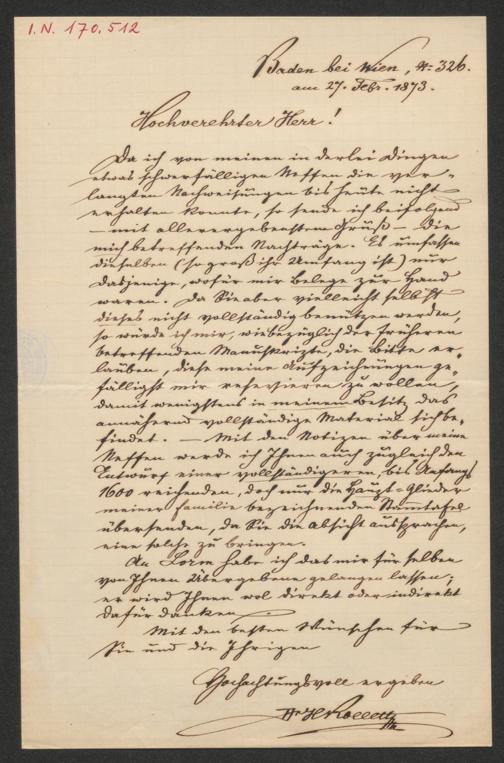 I.N. 170.512
Baden bei Wien, N: 326.
am 27. Febr. 1873.
Hochverehrter Herr!
Da ich von meinen in derlei Dingen
etwas schwerfälligen Neffen die ver-
langten Nachweisungen bis heute nicht
erhalten konnte, so sende ich beifolgend
— mit allerergebenstem Gruß — die
mich betreffenden Nachträge. Es umfassen
dieselben (so groß ihr Umfang ist) nur
dasjenige, wofür mir Belege zur Hand
waren. Da Sie aber vielleicht selbst
dieses nicht vollständig benützen werden,
so würde ich mir, wie bezüglich der früheren
betreffenden Manuskripte, die Bitte er-
lauben, diese meine Aufzeichnungen ge-
fälligst mir reservieren zu wollen,
damit wenigstens in meinem Besitz das
annähernd vollständige Material sich be-
findet. — Mit den Notizen über meine
Neffen werde ich Ihnen auch zugleich den
Entwurf einer vollständigeren, bis Anfangs
1600 reichenden, doch nur die Haupt-Glieder
meiner Familie bezeichnenden Stammtafel
übersenden, da Sie die Absicht aussprachen,
eine solche zu bringen.
An Lorm habe ich das mir für selben
von Ihnen Übergebene gelangen lassen;
er wird Ihnen wol direkt oder indirekt
dafür danken.
Mit den besten Wünschen für
Sie und die Ihrigen
Hochachtungsvoll ergeben
Dr HRollett